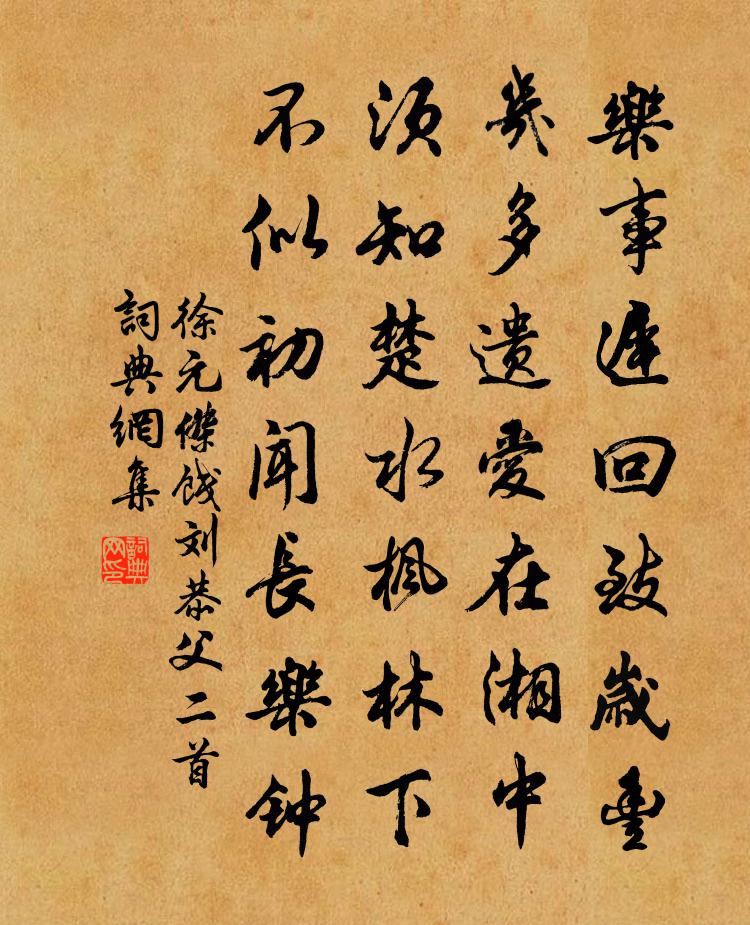 樂事遲回致歲豐
幾多遺愛在湘中
須知楚水楓林下
不似初聞長樂钟
徐元傑餞刘恭父二首
詞典網集
詞典
网印